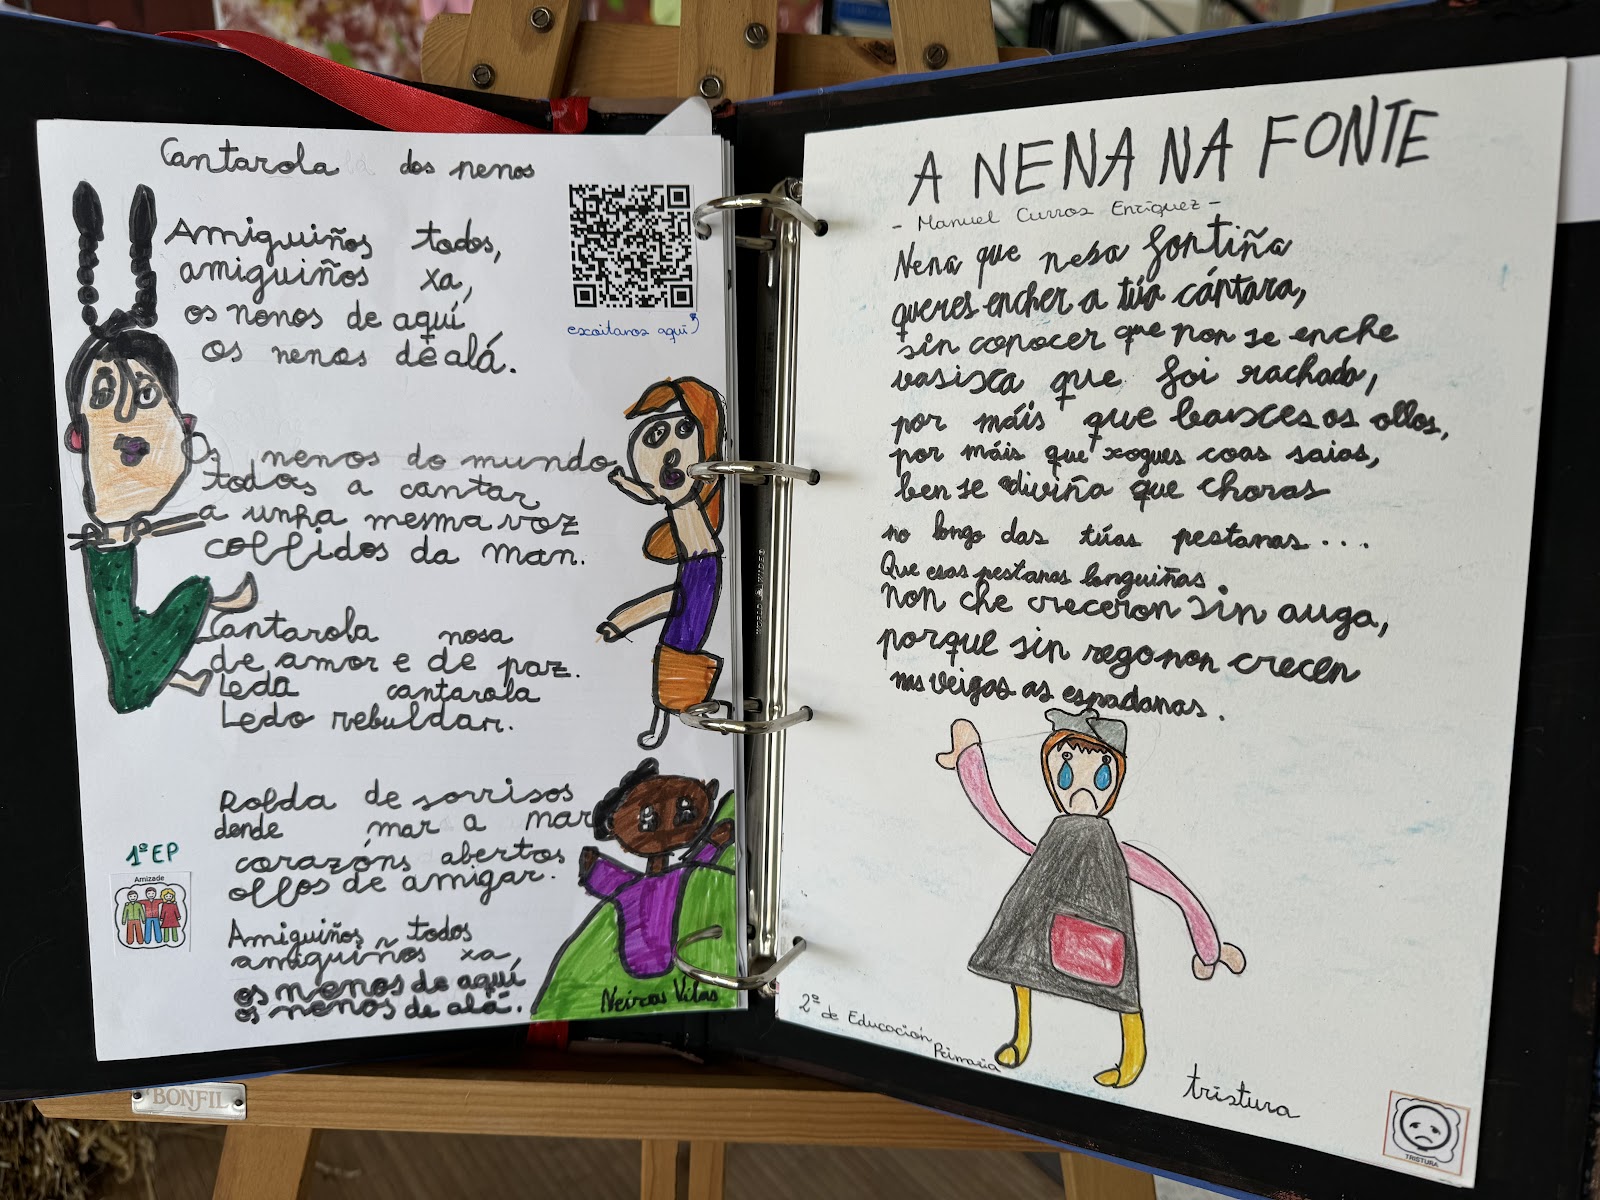 Cantarola dos nenos
Amiguiños todos,
amiguiños xa,
os nenos de aquí
os nenos de alá.
escoitanos aquí
Os nenos do mundo
todos a cantar
a unha mesma voz
collidos da man.
Cantarola nosa
de amor e de paz.
Leda cantarola
Ledo rebuldar.
Rolda de sorrisos
dende mar a mar
corazóns abertos
ollos de amigar.
Amiguiños todos
amiguiños xa,
os nenos de aquí
os nenos de alá.
Neiras Vilas
1º EP
Amizade
A NENA NA FONTE
- Manuel Curros Enríquez -
Nena que nesa fontiña
queres encher a túa cántara,
sin coñocer que non se enche
vasixa que foi rachada,
por máis que baixes os ollos,
por máis que xogues coas saias,
ben se adiviña que choras
no longo das túas pestanas...
Que esas pestanas longuiñas,
non che creceron sin auga,
porque sin rego non crecen
nas veigas as espadanas.
2º de Educación
Primaria
tristura
TRISTURA
BONFIL